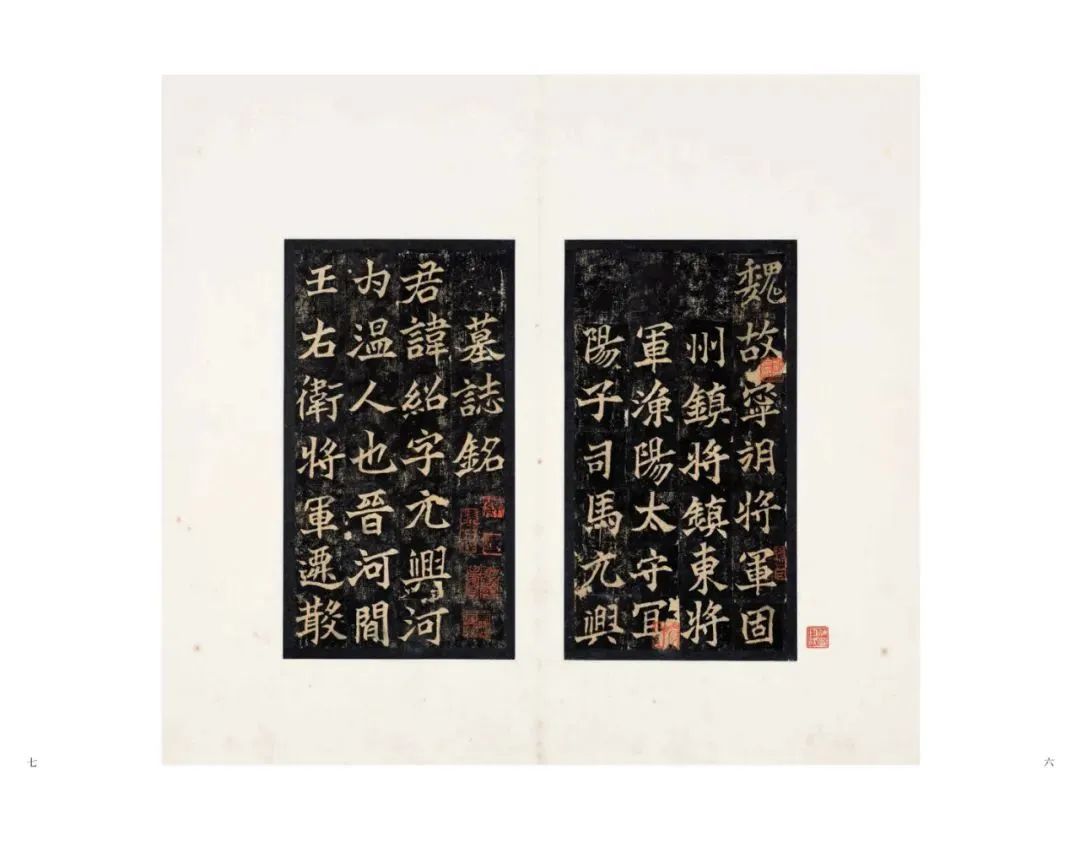 魏故寧朔將軍固
州鎮將鎮東將
軍漁陽太守冝
陽子司馬元興
墓誌銘
君諱紹字元興河
内温人也晉河間
王右衛將軍遷散
六
七